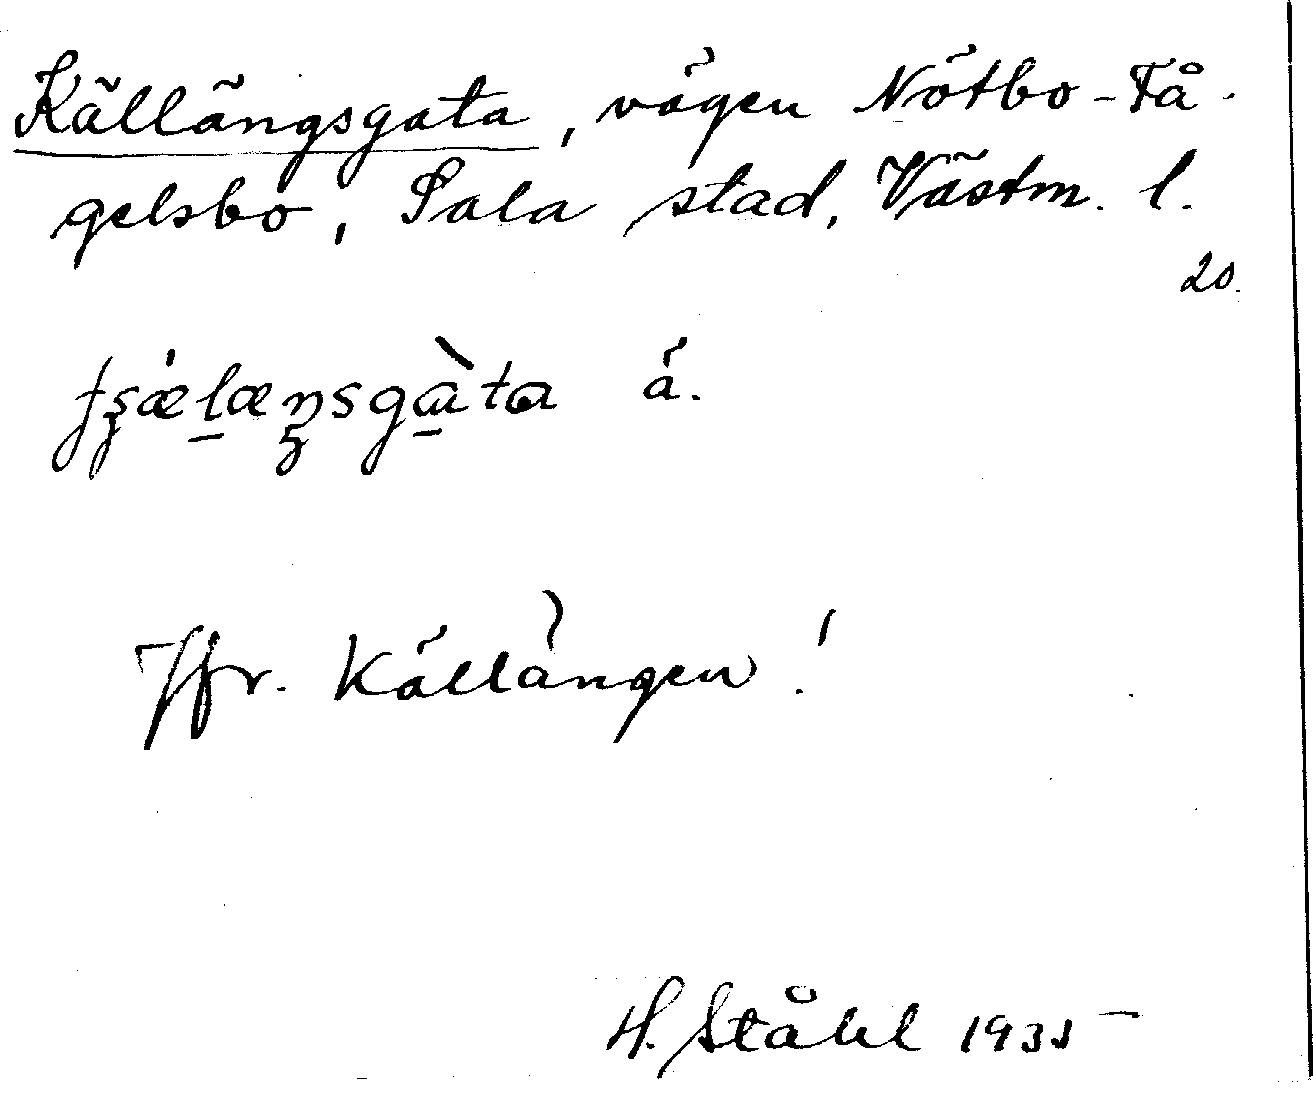 Källängsgata, vägen Nötbo-Få-
gelsbo, Sala stad, Västm. l.
20.
á.
Jfr. Källängen!
H. Ståhl 1935